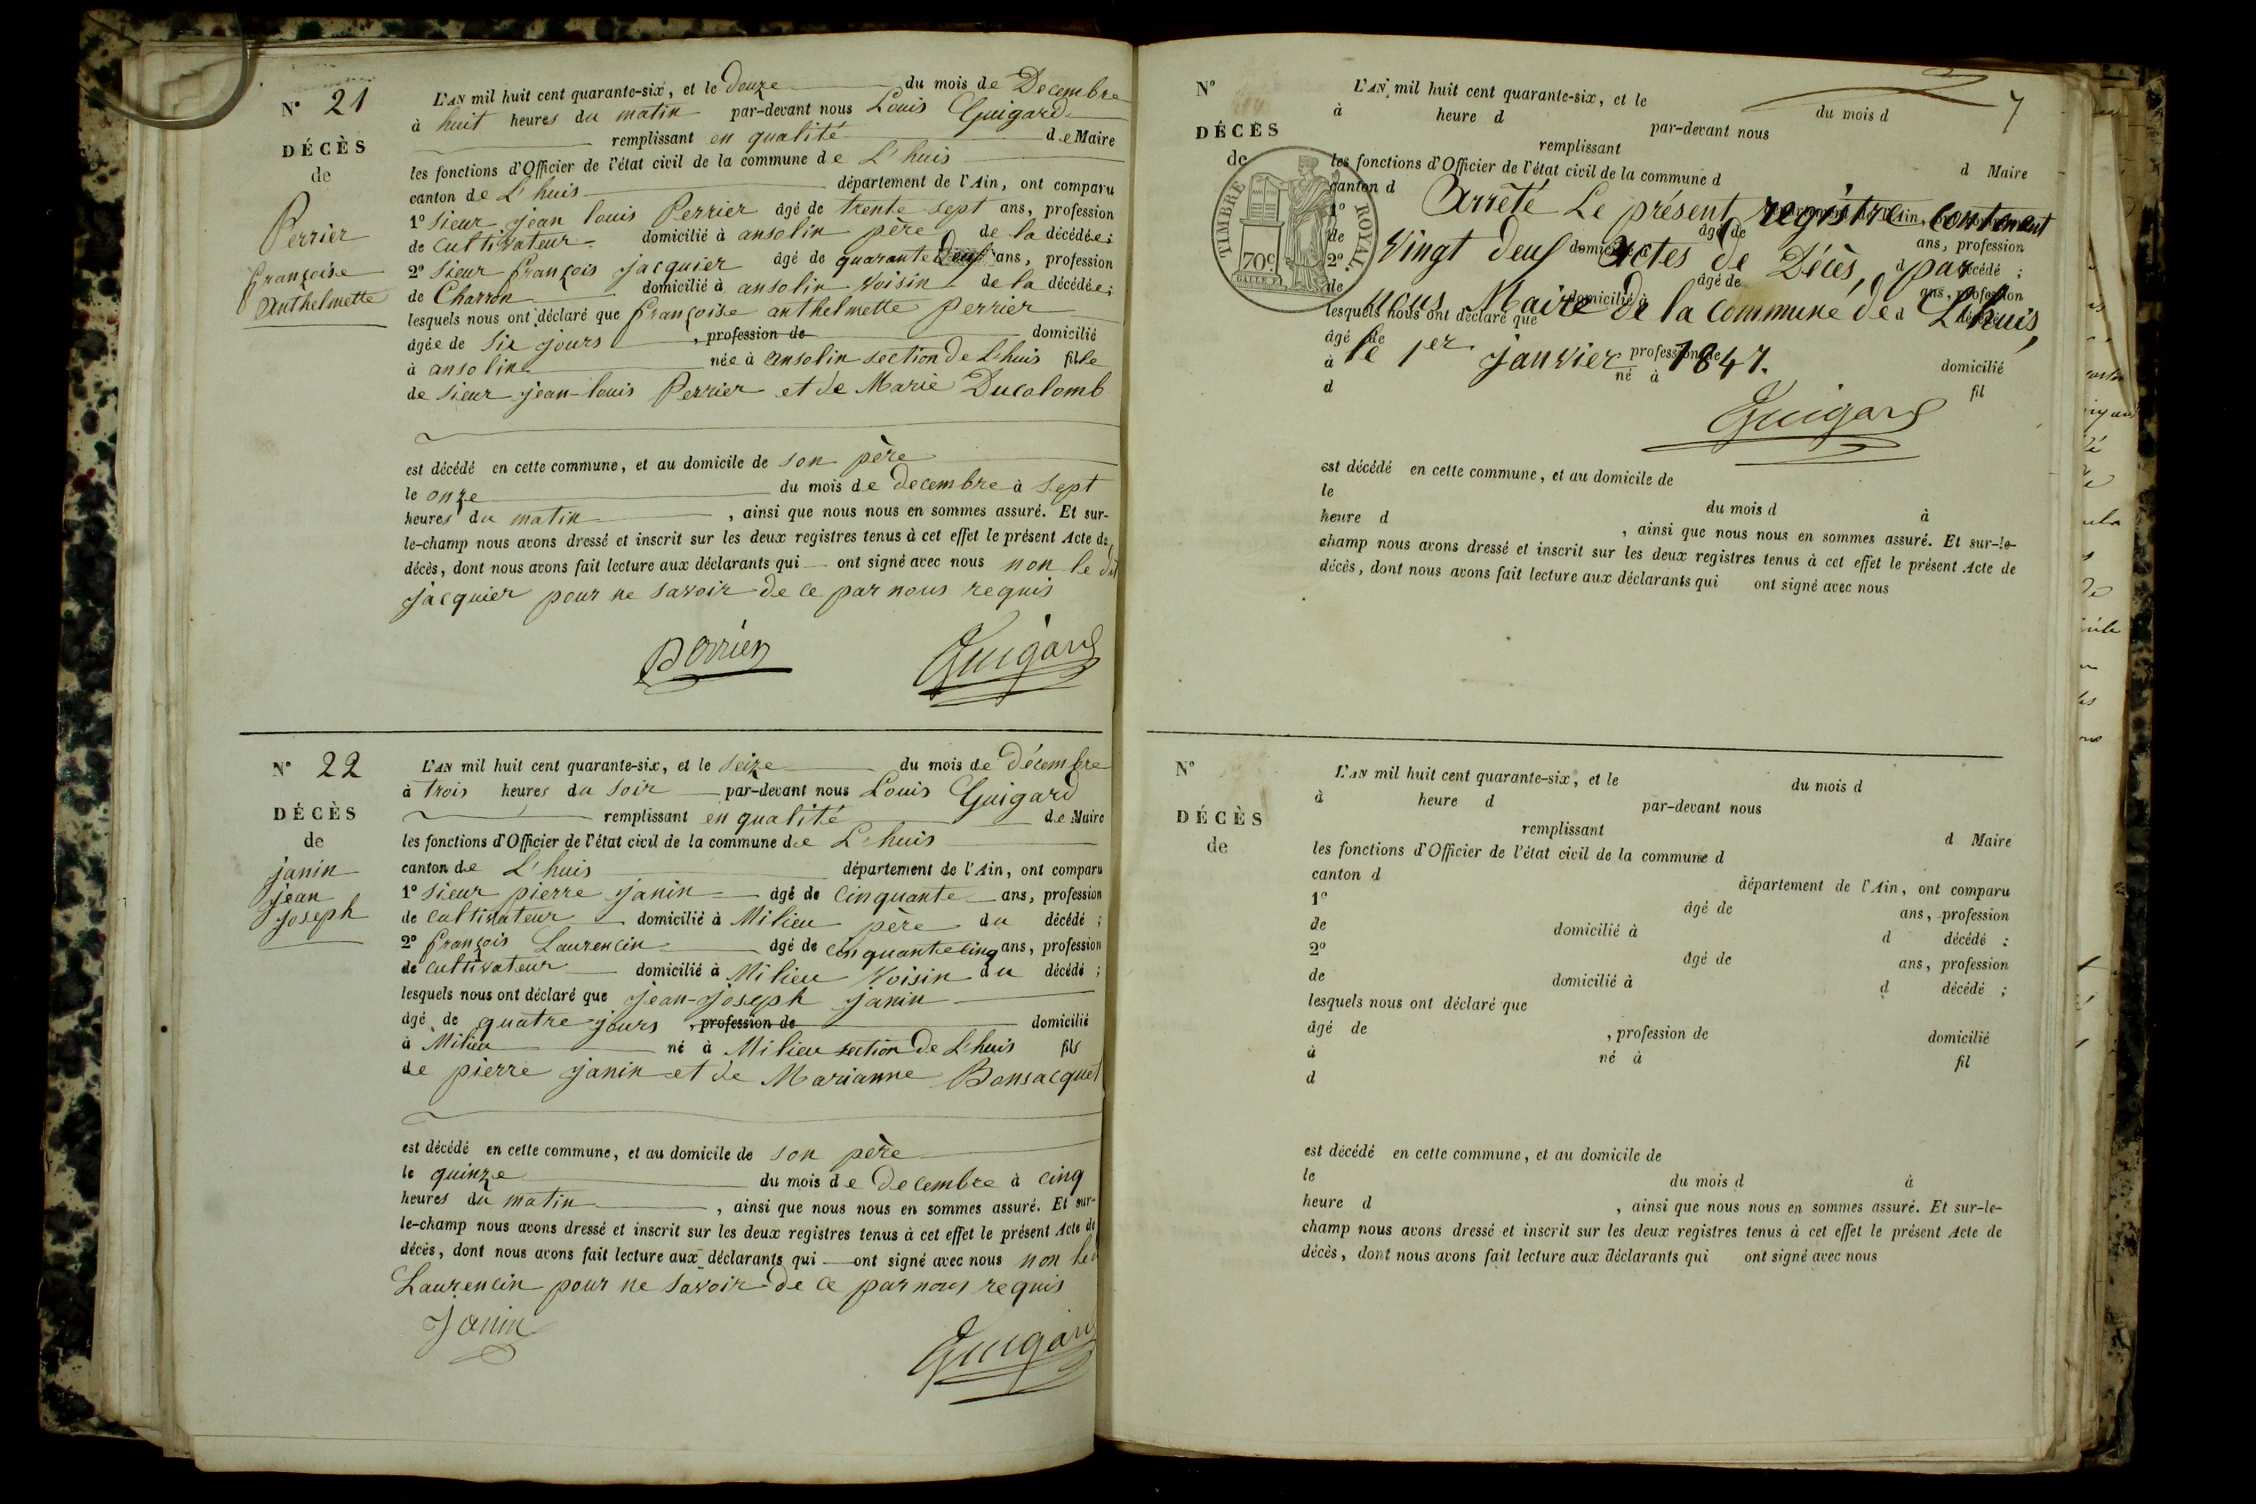 N° 21
DÉCÈS
de
Perrier
françoise
Anthelmette
L'AN mil huit cent quarante-six, et le douze du mois de Decembre
à huit heures du matin par-devant nous Louis Guigard
remplissant en qualité de Maire
les fonctions d'Officier de l'état civil de la commune de L'huis
canton de L'huis département de l'Ain, ont comparu
1° Sieur jean louis Perrier âgé de trente sept ans, profession
de cultivateur domicilié à ansolin père de la décédée;
2° Sieur françois jacquier âgé de quarante deux ans, profession
de Charron domicilié à ansolin voisin de la décédée;
lesquels nous ont déclaré que françoise anthelmette perrier
âgée de six jours , profession de domicilié
à ansolin née à ansolin section de L'huis fille
de sieur jean-louis Perrier et de Marie Ducolomb
est décédé en cette commune, et au domicile de son père
le onze du mois de decembre à sept
heures du matin , ainsi que nous nous en sommes assuré. Et sur-
le-champ nous avons dressé et inscrit sur les deux registres tenus à cet effet le présent Acte de
décès, dont nous avons fait lecture aux déclarants qui ont signé avec nous non le dit
jacquier pour ne savoir de ce par nous requis
Perrier Guigard
N° 22
DÉCÈS
de
janin
jean
joseph
L'AN mil huit cent quarante-six, et le seize du mois de Décembre
à trois heures du soir par-devant nous Louis Guigard
remplissant en qualité de Maire
les fonctions d'Officier de l'état civil de la commune de L'huis
canton de L'huis département de l'Ain, ont comparu
1° Sieur pierre janin âgé de cinquante ans, profession
de cultivateur domicilié à Milieu père du décédé ;
2° françois Laurencin âgé de cinquante cinq ans, profession
de cultivateur domicilié à Milieu voisin du décédé ;
lesquels nous ont déclaré que jean-joseph janin
âgé de quatre jours , profession de domicilié
à Milieu né à Milieu section de L'huis fils
de pierre janin et de Marianne Bonsacquet
est décédé en cette commune, et au domicile de son père
le quinze du mois de decembre à cinq
heures du matin , ainsi que nous nous en sommes assuré. Et sur-
le-champ nous avons dressé et inscrit sur les deux registres tenus à cet effet le présent Acte de
décès, dont nous avons fait lecture aux déclarants qui ont signé avec nous non le
Laurencin pour ne savoir de ce par nous requis
Janin
Guigard
7
N°
DÉCÈS
de
TIMBRE ROYAL.
70c.
L'AN mil huit cent quarante-six, et le du mois d
à heure d par-devant nous
remplissant d Maire
les fonctions d'Officier de l'état civil de la commune d
canton d
1° âgé de ans, profession
de domicilié à d décédé ;
2° âgé de ans, profession
de domicilié à d
lesquels nous ont déclaré que
âgé de profession de domicilié
à né à fil
d
Arrêté Le présent registre contenant
Vingt deux Actes de Décès, par
nous Maire de la commune de Lhuis,
le 1er janvier 1847.
Guigard
est décédé en cette commune, et au domicile de
le du mois d à
heure d , ainsi que nous nous en sommes assuré. Et sur-le-
champ nous avons dressé et inscrit sur les deux registres tenus à cet effet le présent Acte de
décès, dont nous avons fait lecture aux déclarants qui ont signé avec nous
N°
DÉCÈS
de
L'AN mil huit cent quarante-six, et le du mois d
à heure d par-devant nous
remplissant d Maire
les fonctions d'Officier de l'état civil de la commune d
canton d département de l'Ain, ont comparu
1° âgé de ans, profession
de domicilié à d décédé :
2° âgé de ans, profession
de domicilié à d décédé ;
lesquels nous ont déclaré que
âgé de , profession de domicilié
à né à fil
d
est décédé en cette commune, et au domicile de
le du mois d à
heure d , ainsi que nous nous en sommes assuré. Et sur-le-
champ nous avons dressé et inscrit sur les deux registres tenus à cet effet le présent Acte de
décès, dont nous avons fait lecture aux déclarants qui ont signé avec nous